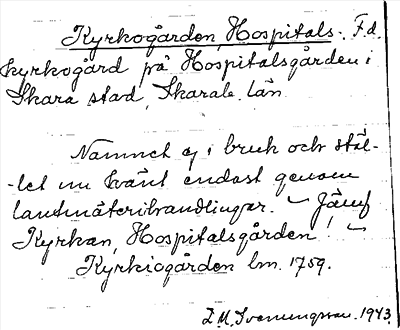 Kyrkogården, Hospitals-. F.d.
kyrkogård på Hospitalsgården i
Skara stad, Skarab. län.
Namnet ej i bruk och stäl-
-let nu känt endast genom
lantmäterihandlingar. ~ Jämf
Kyrkan, Hospitalsgården! ~
Kyrkiogården lm. 1759.
1943.